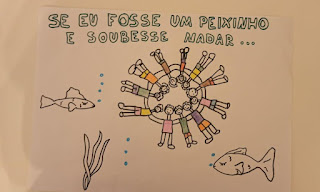 SE EU FOSSE UM PEIXINHO
E SOUBESSE NADAR...